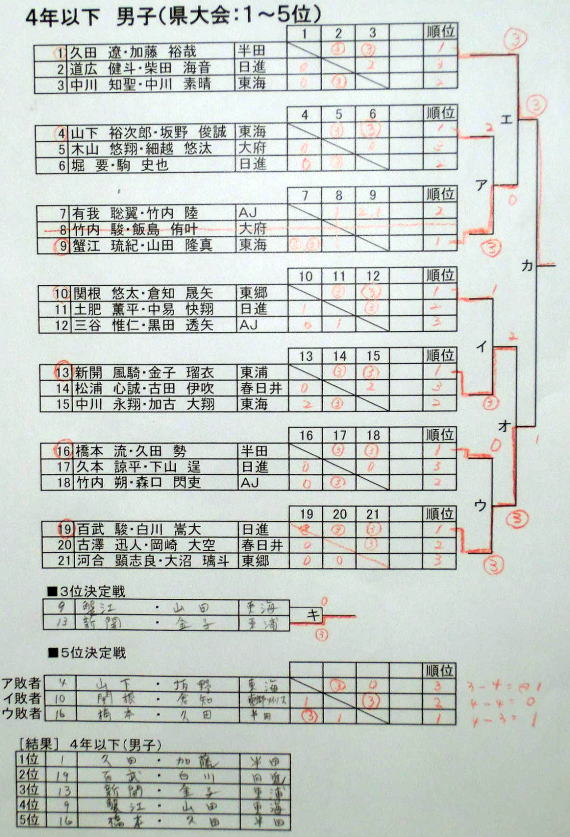 4年以下 男子(県大会:1〜5位)
1 2 3 順位
1 久田 遼・加藤 裕哉 半田 ③ ③ 1
2 道広 健斗・柴田 海音 日進 0 2 3
3 中川 知聖・中川 素晴 東海 0 ③ 2
4 5 6 順位
4 山下 裕次郎・坂野 俊誠 東海 ③ ③ 1
5 木山 悠翔・細越 悠汰 大府 0 0 3
6 堀 要・駒 史也 日進 0 ③ 2
7 8 9 順位
7 有我 聡翼・竹内 陸 AJ 2
8 竹内 駿・飯島 侑叶 大府
9 蟹江 琉紀・山田 隆真 東海 1
10 11 12 順位
10 関根 悠太・倉知 晟矢 東郷 ③ ③ 1
11 土肥 薫平・中易 快翔 日進 1 ③ 2
12 三谷 惟仁・黒田 透矢 AJ 0 1 3
13 14 15 順位
13 新開 風騎・金子 瑠衣 東浦 ③ ③ 1
14 松浦 心誠・古田 伊吹 春日井 0 2 3
15 中川 永翔・加古 大翔 東海 2 ③ 2
16 17 18 順位
16 橋本 流・久田 勢 半田 ③ ③ 1
17 久本 諒平・下山 逞 日進 0 0 3
18 竹内 朔・森口 閃吏 AJ 0 ③ 2
19 20 21 順位
19 百武 駿・白川 嵩大 日進 ③ ③ 1
20 古澤 迅人・岡崎 大空 春日井 0 ③ 2
21 河合 顕志良・大沼 璃斗 東郷 0 0 3
③ エ ③
2 ア 0 ③
カ
1 イ 2 ③
オ 1
0 ウ ③ ③
■3位決定戦
9 蟹江・山田 東海 0
キ
13 新開・金子 東浦 ③
■5位決定戦
順位
ア敗者 4 山下・坂野 東海 ③ 0 3
イ敗者 10 関根・倉知 1 ③ 2
ウ敗者 16 橋本・久田 半田 ③ 1 1
4-4=0
4-3=1
[結果] 4年以下(男子)
1位 1 久田・加藤 半田
2位 19 百武・白川 日進
3位 13 新開・金子 東浦
4位 9 蟹江・山田 東海
5位 16 橋本・久田 半田